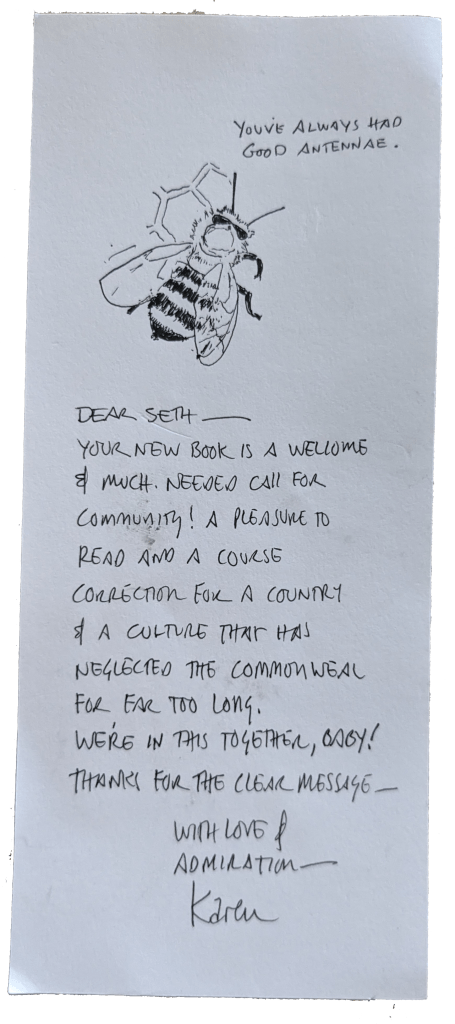 YOU'VE ALWAYS HAD
GOOD ANTENNAE.
DEAR SETH —
YOUR NEW BOOK IS A WELCOME
& MUCH-NEEDED CALL FOR
COMMUNITY! A PLEASURE TO
READ AND A COURSE
CORRECTION FOR A COUNTRY
& A CULTURE THAT HAS
NEGLECTED THE COMMONWEAL
FOR FAR TOO LONG.
WE'RE IN THIS TOGETHER, BABY!
THANKS FOR THE CLEAR MESSAGE —
WITH LOVE &
ADMIRATION —
Karen